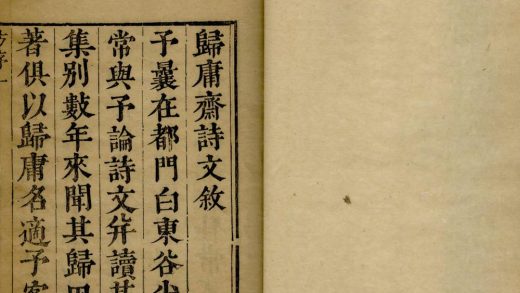 歸庸齋詩文敘
予曩在都門白東谷
常與予論詩文幷讀其
集別數年來聞其歸田
著俱以歸庸名適予